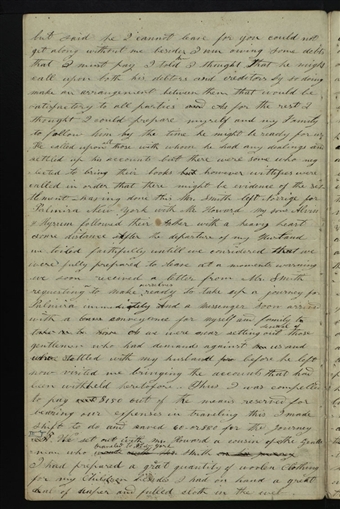 but said he I cannot leave for you could not
get along without me besides I am owing some debts
that I must pay I told I thought that he might
call upon both his debtors and creditors by so doing
make an arrangement between them that would be
satisfactory to all parties and As for the rest I
thought I could prepare myself and my Family
to follow him by the time he might be ready for us
He called upon those with whom he had any dealings and
settled up his accounts but there were some who neg
lected to bring their books but however witnesses were
called in order that there might be evidence of the set
tlement having done this Mr. Smith left Norwige for
Palmira New York with Mr Howard My sons Alvin
& Hyrum followed their Father with a heavy heart
some distance After the departure of my Husband
we toiled faithfully untill we considered that we
were fully prepared to leave at a moments warning
we soon received a letter from Mr Smith
requesting to make ready to take up a journey for
Palmira immediately And a messenger soon arrived
with a conveyance for myself and family
As we were near setting out those
gentlemen who had demands against us and
settled with my husband before he left
now visited me bringing the accounts that had
been withheld heretofore Thus I was compelled
to pay $150 out of the means reserved for
bearing our expenses in traveling this I made
shift to do and saved 60 or 80$ for the journey
We set out with Mr Howard a cousin of the Gentle
man who
I had prepared a great quantity of woolen clothing
for my Children besides I had on hand a great
deal of diaper and pulled cloth in the web